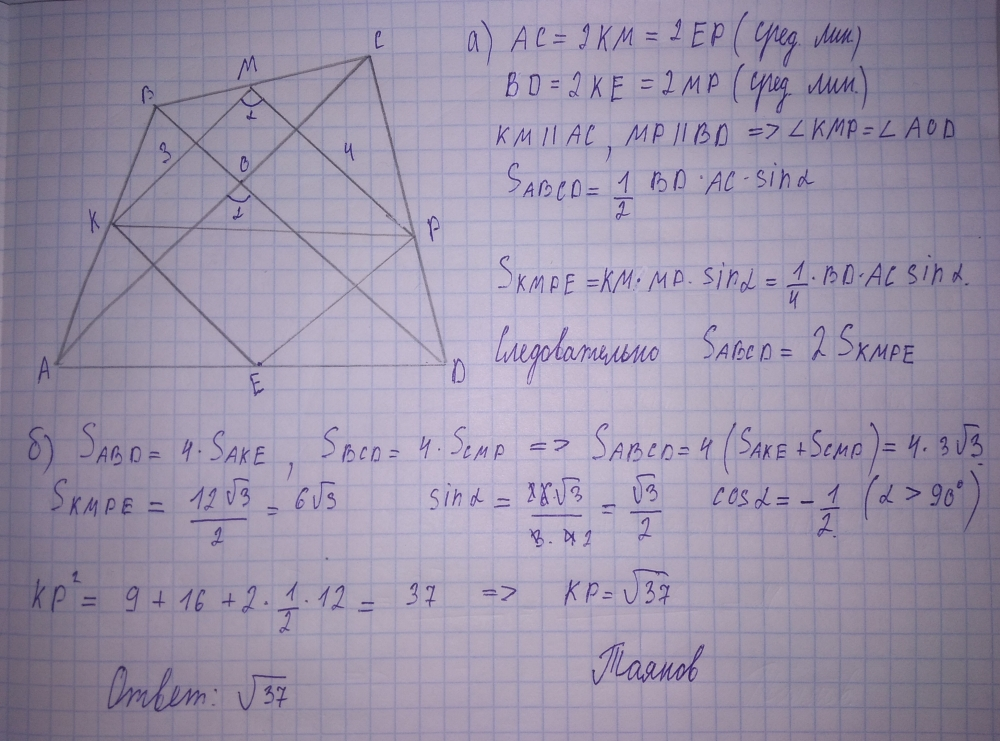 C
M
B
α
3
O
4
α
K
P
A
E
D
а) AC = 2KM = 2EP (сред. лин)
BD = 2KE = 2MP (сред. лин.)
KM || AC, MP || BD => ∠KMP = ∠AOD
S_ABCD = 1/2 BD · AC · sinα
S_KMPE = KM · MP · sinα = 1/4 · BD · AC sinα.
Следовательно S_ABCD = 2 S_KMPE
б) S_ABD = 4 · S_AKE, S_BCD = 4 · S_CMP => S_ABCD = 4 (S_AKE + S_CMP) = 4 · 3√3
S_KMPE = 12√3/2 = 6√3 sinα = √3/2 cosα = -1/2 (α > 90°)
KP² = 9 + 16 + 2 · 1/2 · 12 = 37 => KP = √37
Ответ: √37
Таянов